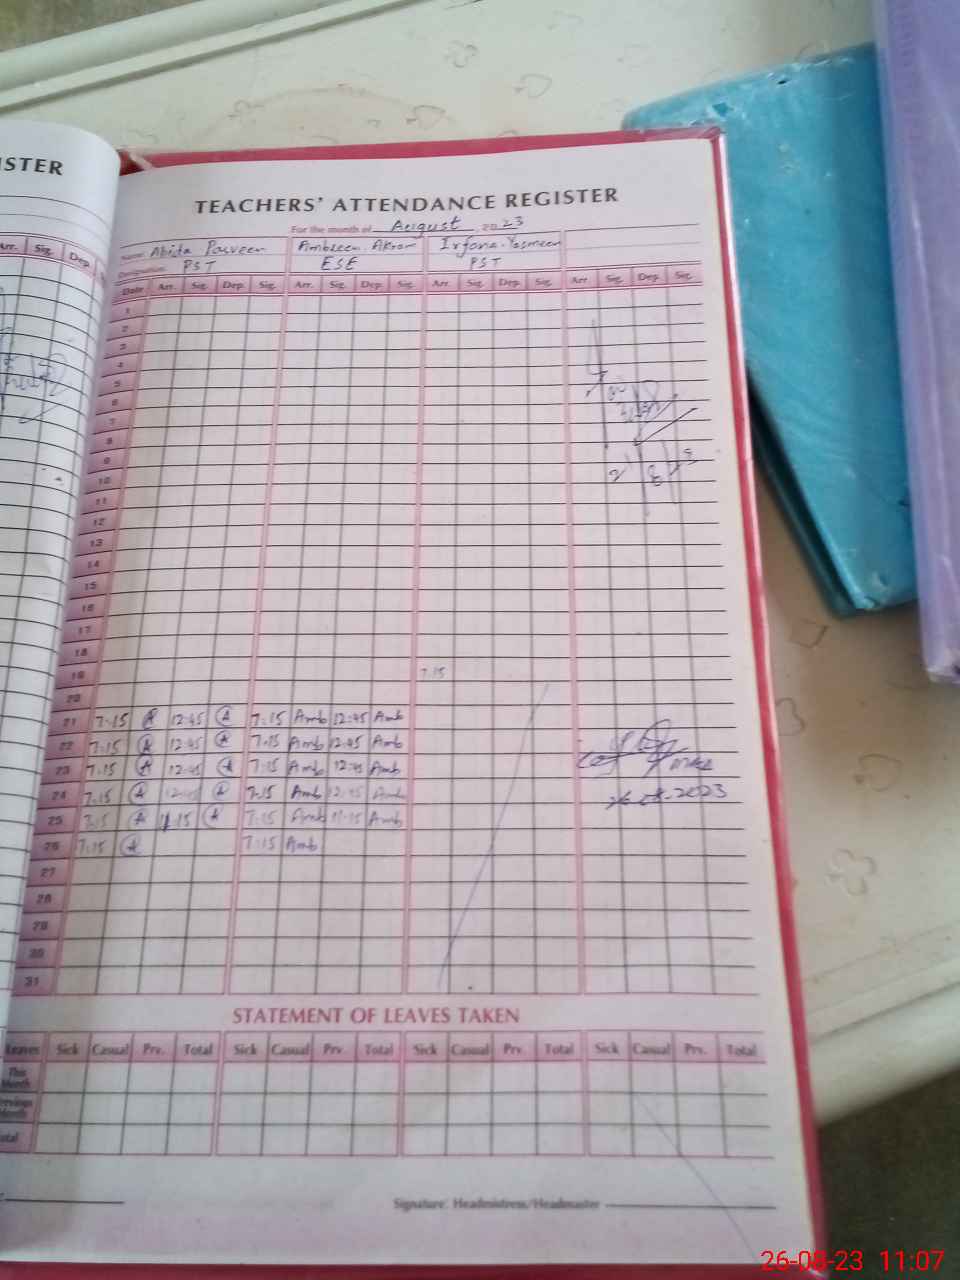 ISTER
Arr. Sig. Dep.
TEACHERS' ATTENDANCE REGISTER
For the month of August 2023
Name: Abida Parveen Ambreen Akram Irfana Yasmeen
Designation: PST ESE PST
Date Arr. Sig. Dep. Sig. Arr. Sig. Dep. Sig. Arr. Sig. Dep. Sig. Arr. Sig. Dep. Sig.
1
2
3
4
5
6
7
8
9
10
11
12
13
14
15
16
17
18
19 7.15
20
21 7:15 A 12:45 A 7:15 Amb 12:45 Amb
22 7:15 A 12:45 A 7.15 Amb 12:45 Amb
23 7.15 A 12:45 A 7:15 Amb 12:45 Amb
24 7:15 A 12:45 A 7.15 Amb 12:45 Amb
25 7:15 A 11:15 A 7:15 Amb 11:15 Amb
26 7:15 A 7:15 Amb
26.08.2023
27
28
29
30
31
STATEMENT OF LEAVES TAKEN
Leaves Sick Casual Prv. Total Sick Casual Prv. Total Sick Casual Prv. Total Sick Casual Prv. Total
This Month
Previous Month
Total
Signature: Headmistress/Headmaster
26-08-23 11:07